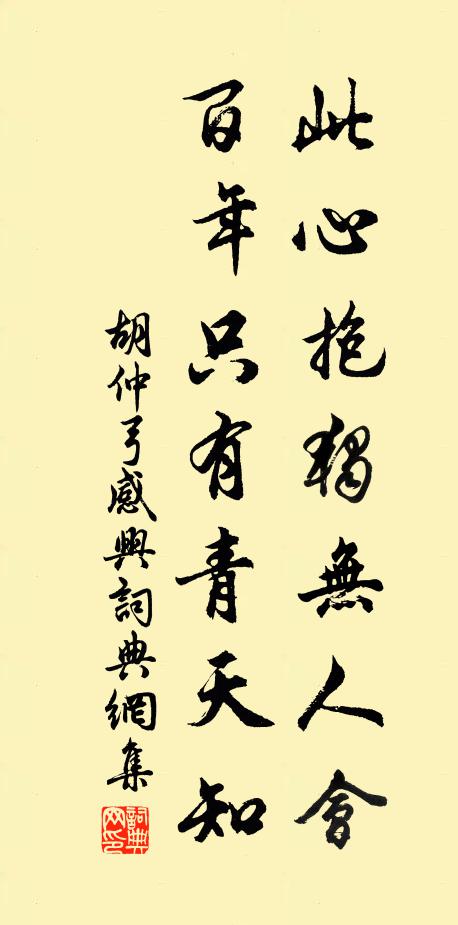 此心抱独無人會
百年只有青天知
胡仲弓感興詞典網集
詞典网印